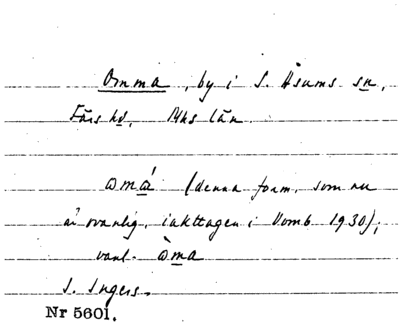 Omma, by i S. Åsums sn,
Färs hd, Mhs län.
ɷmá (denna form, som nu
är ovanlig, iakttagen i Vomb 1930);
vanl. ɷ̀ma
S. Ingers.
Nr 5601.